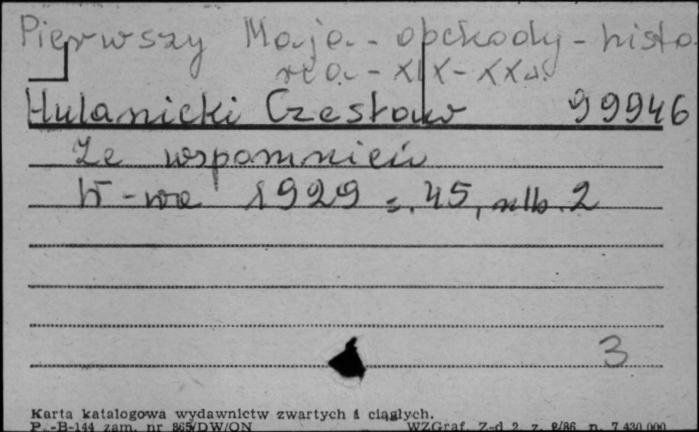 Pierwszy Maja - obchody - histo
ria - XIX - XX w.
Hulanicki Czesław 99946
Ze wspomnień
W-wa 1929 s. 45, nlb. 2
3
Karta katalogowa wydawnictw zwartych i ciągłych.
P.-B-144 zam. nr 865/DW/ON WZGraf. Z-d 2, z. 2/86 n. 7.430.000